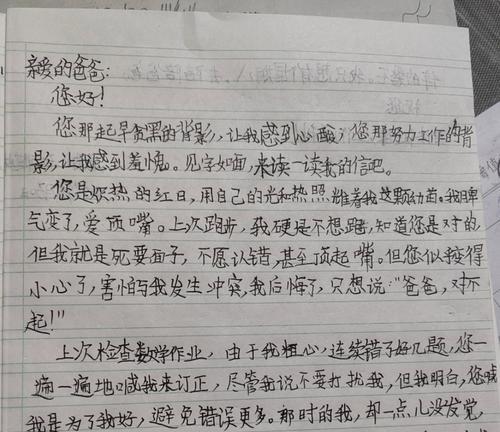 亲爱的爸爸：
您好！
您那起早贪黑的背影，让我感到心酸；您那努力工作的背
影，让我感到羞愧。见字如面，来读一读我的信吧。
您是炽热的红日，用自己的光和热照耀着我这颗幼苗。我脾
气变了，爱顶嘴。上次跑步，我硬是不想跑，知道您是对的，
但我就是死要面子，不愿认错，甚至顶起嘴。但您似乎变得
小心了，害怕与我发生冲突，我后悔了，只想说：“爸爸，对不
起！”
上次检查数学作业，由于我粗心，连续错了好几题，您一
遍一遍地喊我来订正，尽管我说不要打扰我，但我明白，您喊
我是为了我好，避免错误更多。那时的我，却一点儿没发觉，